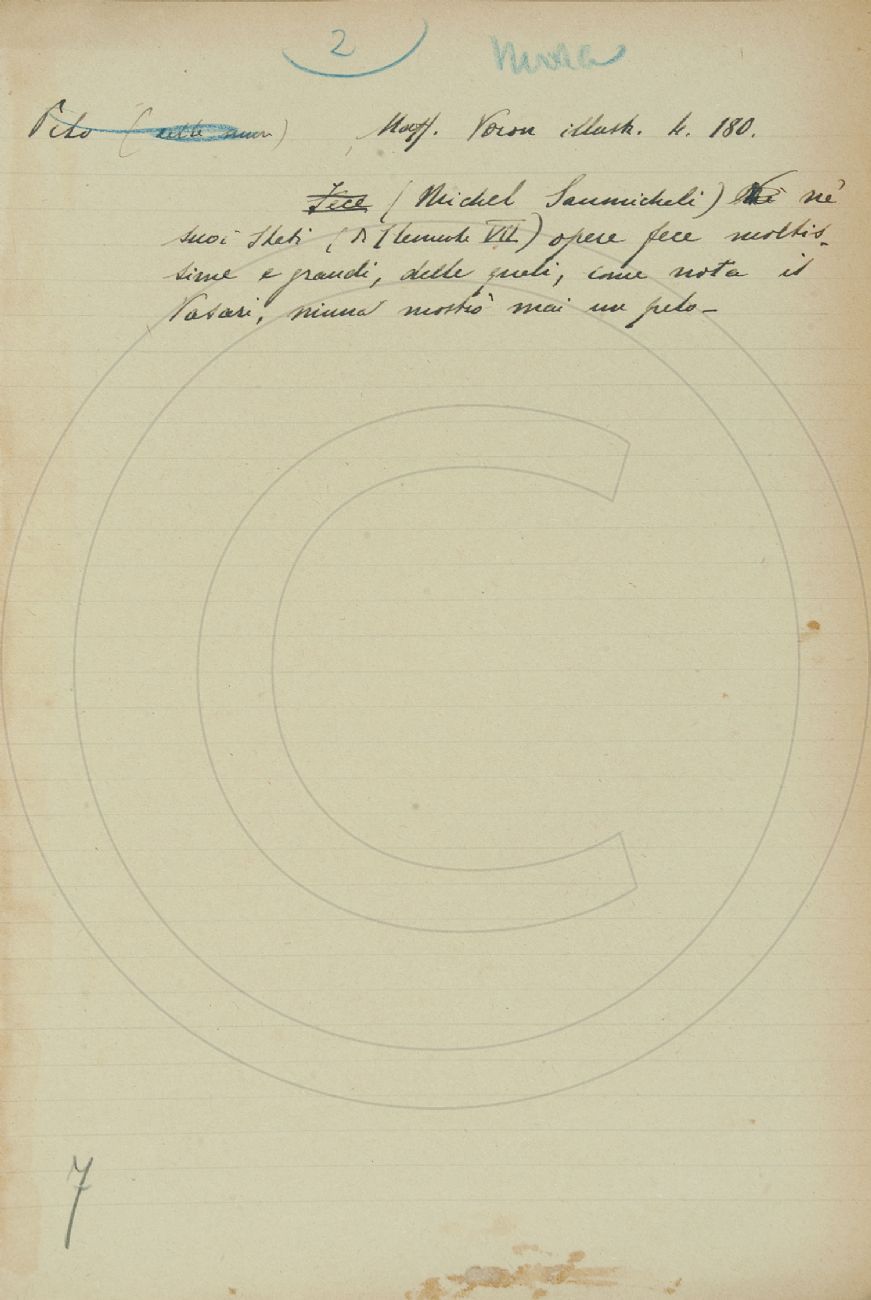 2
Pelo (nelle mura) Maff. Veron illustr. 4. 180.
Fece (Michel Sanmicheli) Ne ne'
suoi Stati (di Clemente VII) opere fece moltis-
sime e grandi, delle quali, come nota il
Vasari, niuna mostrò mai un pelo -
7